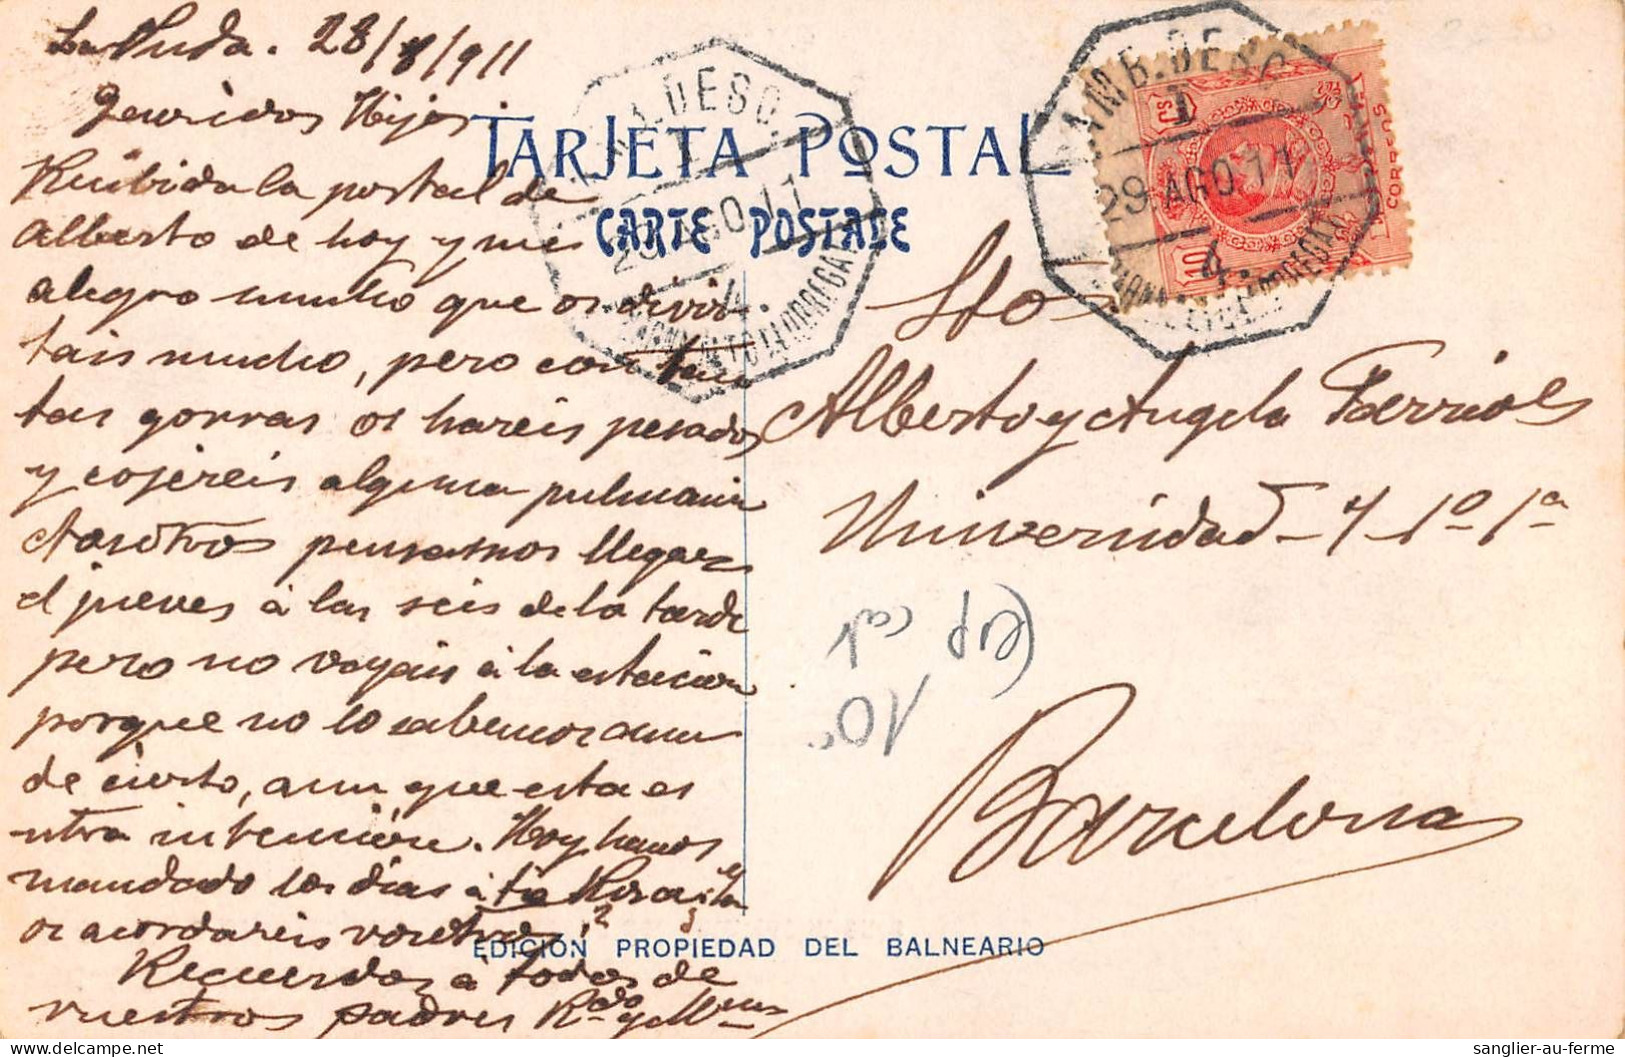 La Puda. 28/8/911
Queridos Hijos
Recibida la postal de
Alberto de hoy y me
alegro mucho que os divir-
tais mucho, pero con tan
tas gorras os hareis pesados
y cojereis alguna
Nosotros pensamos llegar
el jueves á las seis de la tarde
pero no vayáis á la estación
porque no lo sabemos aun
de cierto, aun que esta es
ntra intención. Hoy hemos
mandado los dias á ta Rosa
os acordareis vosotros?
Recuerdos á todos de
vuestros padres Rdo y
TARJETA POSTAL
CARTE POSTALE
AMB. DESC.
29 AGO 11
4.
AMB. DESC.
1
29 AGO 11
4.
CORREOS
10 CS
Stos
Alberto y Angela Farriols
Universidad - 7 1º 1ª
Barcelona
Esp
cat
10€
EDICIÓN PROPIEDAD DEL BALNEARIO
sanglier-au-ferme